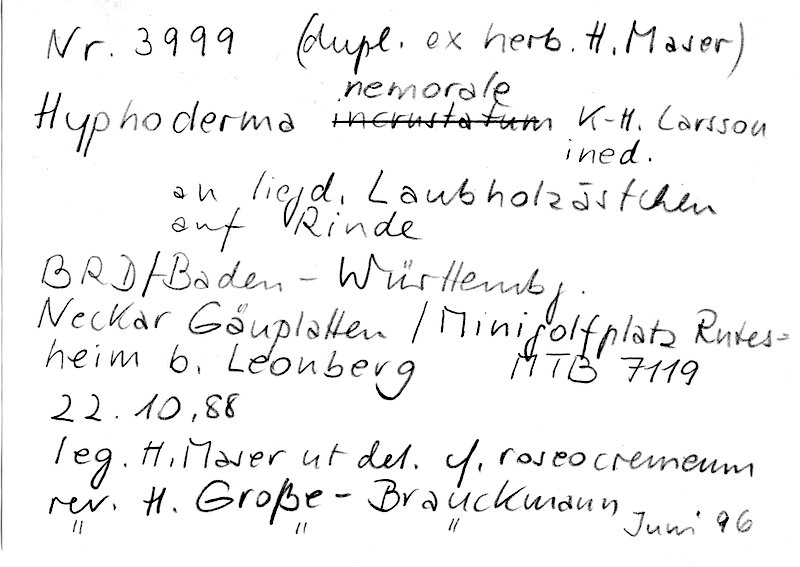 Nr. 3999 (dupl. ex herb. H. Maser)
nemorale
Hyphoderma incrustatum K-H. Larsson
ined.
an liegd. Laubholzästchen
auf Rinde
BRD/Baden-Württembg.
Neckar Gäuplatten / Minigolfplatz Rutes-
heim b. Leonberg MTB 7119
22.10.88
leg. H. Maser ut det. cf. roseocremeum
rev. H. Große-Brauckmann
" " " Juni 96